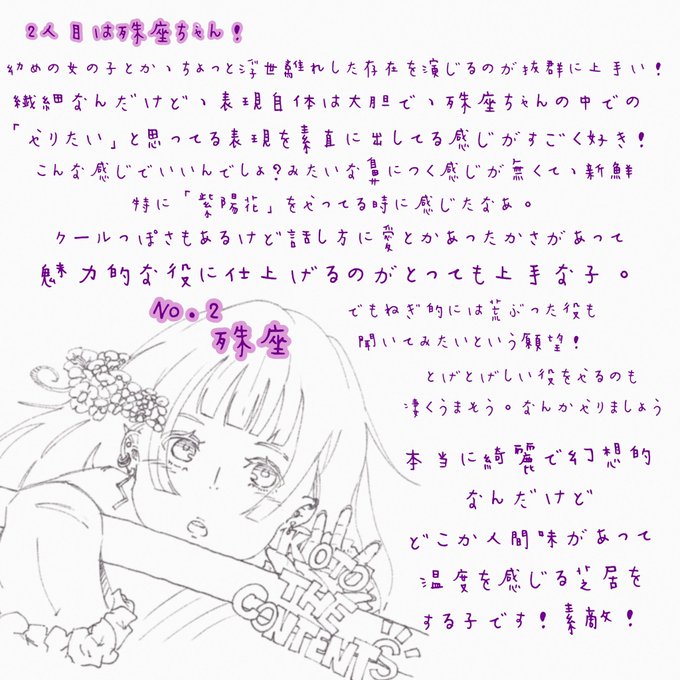 2人目は殊座ちゃん！
幼めの女の子とか、ちょっと浮世離れした存在を演じるのが抜群に上手い！
繊細なんだけど、表現自体は大胆で、殊座ちゃんの中での
「やりたい」と思ってる表現を素直に出してる感じがすごく好き！
こんな感じでいいんでしょ？みたいな鼻につく感じが無くて、新鮮
特に「紫陽花」をやってる時に感じたなぁ。
クールっぽさもあるけど話し方に愛とかあったかさがあって
魅力的な役に仕上げるのがとっても上手な子。
NO.2
殊座
でもねぎ的には荒ぶった役も
聞いてみたいという願望！
とげとげしい役をやるのも
凄くうまそう。なんかやりましょう
本当に綺麗で幻想的
なんだけど
どこか人間味があって
温度を感じる芝居を
する子です！素敵！
KOTO
THE
CONTENTS